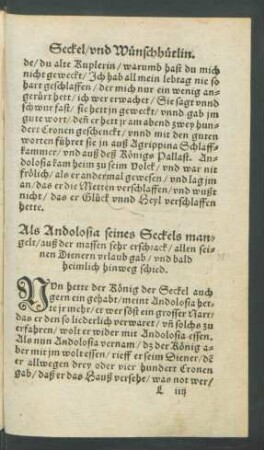 Seckel/ vnd Wünschhütlin.
de/ du alte Kuplerin/ warumb hast du mich
nicht geweckt/ Ich hab all mein lebtag nie so
hart geschlaffen/ der mich nur ein wenig an-
gerürt hett/ ich wer erwachet/ Sie sagt vnnd
schwur fast/ sie hett jn geweckt/ vnnd gab jm
gute wort/ deß er hett jr am abend zwey hun-
dert Cronen geschenckt/ vnnd mit den guten
worten führet sie jn auß Agrippina Schlaff-
kammer/ vnd auß deß Königs Pallast. An-
dolosia kam heim zu seim Volck/ vnd war nit
frölich/ als er andermal gewesen/ vnd lag jm
an/ das er die Metten verschlaffen/ vnd wußt
nicht/ das er Glück vnnd Heyl verschlaffen
hette.
Als Andolosia seines Seckels man-
gelt/ auß der massen sehr erschrack/ allen sei-
nen Dienern vrlaub gab/ vnd bald
heimlich hinweg schied.
NVn hette der König der Seckel auch
gern ein gehabt/ meint Andolosia het-
te jr mehr/ er wer sōst ein grosser Narr/
das er den so liederlich verwaret/ vñ solchs zu
erfahren/ wolt er wider mit Andolosia essen.
Als nun Andolosia vernam/ dz der König a-
ber mit jm wolt essen/ rieff er seim Diener/ dē
er allwegen drey oder vier hundert Cronen
gab/ daß er das Hauß versehe/ was not wer/
L iiij